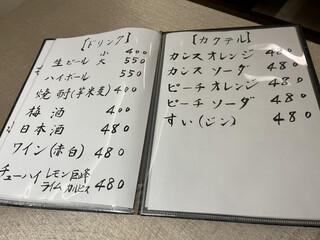 【ドリンク】
小 400
生ビール 大 550
ハイボール 550
焼酎(芋米麦) 400
梅酒 400
日本酒 480
ワイン(赤白) 480
チューハイ レモン 巨峰
ライム カルピス 480
【カクテル】
カシスオレンジ 480
カシスソーダ 480
ピーチオレンジ 480
ピーチソーダ 480
すい(ジン) 480